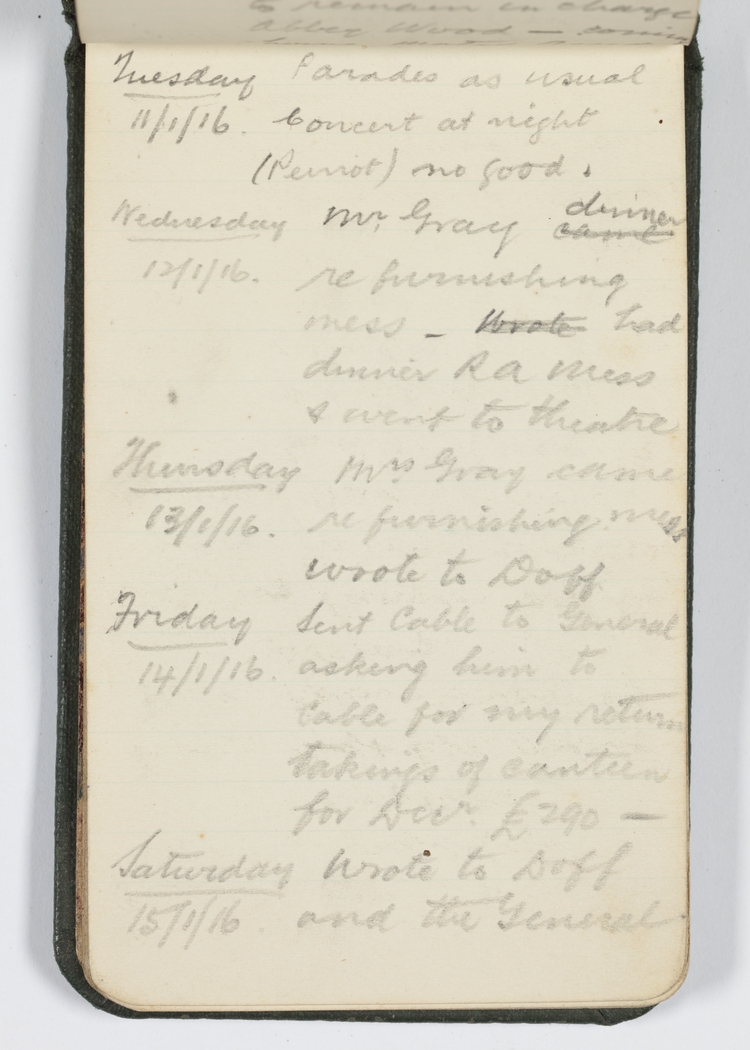 to remain in charge
Abbey Wood — coming
Tuesday Parades as usual
11/1/16. Concert at night
(Pierrot) no good.
Wednesday Mr. Gray dinner
came
12/1/16. re furnishing
mess - Wrote had
dinner RA Mess
& went to theatre
Thursday Mrs Gray came
13/1/16. re furnishing mess
wrote to Doff
Friday Sent Cable to General
14/1/16. asking him to
Cable for my return
takings of canteen
for Decr. £290 —
Saturday Wrote to Doff
15/1/16 and the General